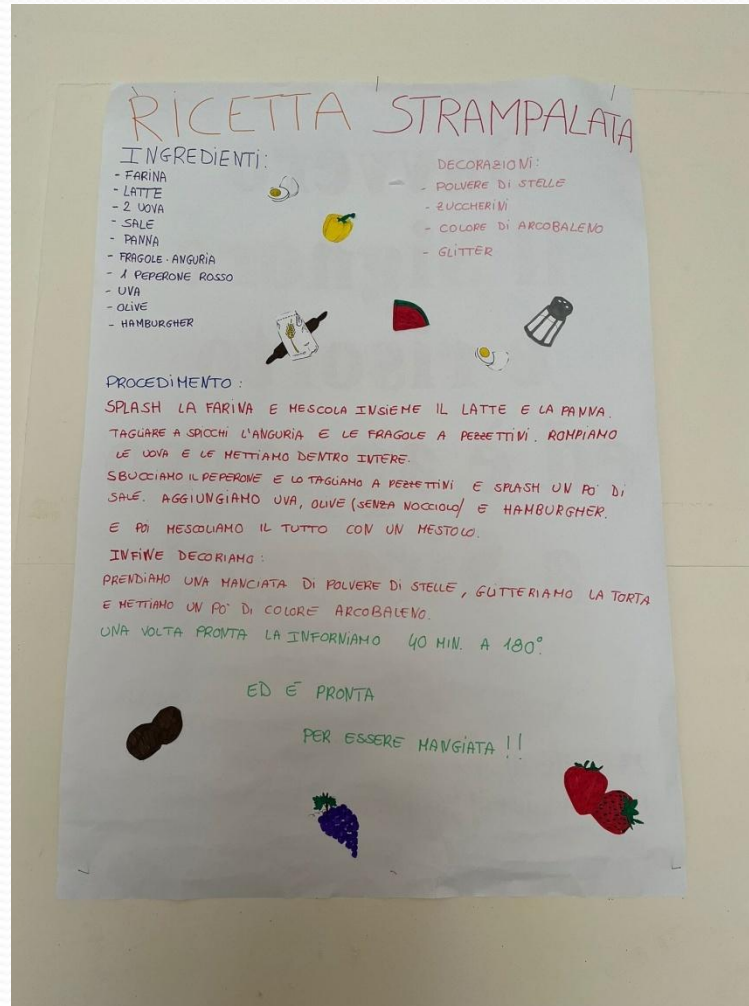 RICETTA STRAMPALATA
INGREDIENTI:
- FARINA
- LATTE
- 2 UOVA
- SALE
- PANNA
- FRAGOLE - ANGURIA
- 1 PEPERONE ROSSO
- UVA
- OLIVE
- HAMBURGHER
DECORAZIONI:
- POLVERE DI STELLE
- ZUCCHERINI
- COLORE DI ARCOBALENO
- GLITTER
PROCEDIMENTO:
SPLASH LA FARINA E MESCOLA INSIEME IL LATTE E LA PANNA.
TAGLIARE A SPICCHI L'ANGURIA E LE FRAGOLE A PEZZETTINI. ROMPIAMO
LE UOVA E LE METTIAMO DENTRO INTERE.
SBUCCIAMO IL PEPERONE E LO TAGLIAMO A PEZZETTINI E SPLASH UN PO' DI
SALE. AGGIUNGIAMO UVA, OLIVE (SENZA NOCCIOLO) E HAMBURGHER.
E POI MESCOLIAMO IL TUTTO CON UN MESTOLO.
INFINE DECORIAMO:
PRENDIAMO UNA MANCIATA DI POLVERE DI STELLE, GLITTERIAMO LA TORTA
E METTIAMO UN PO' DI COLORE ARCOBALENO.
UNA VOLTA PRONTA LA INFORNIAMO 40 MIN. A 180°.
ED È PRONTA
PER ESSERE MANGIATA!!